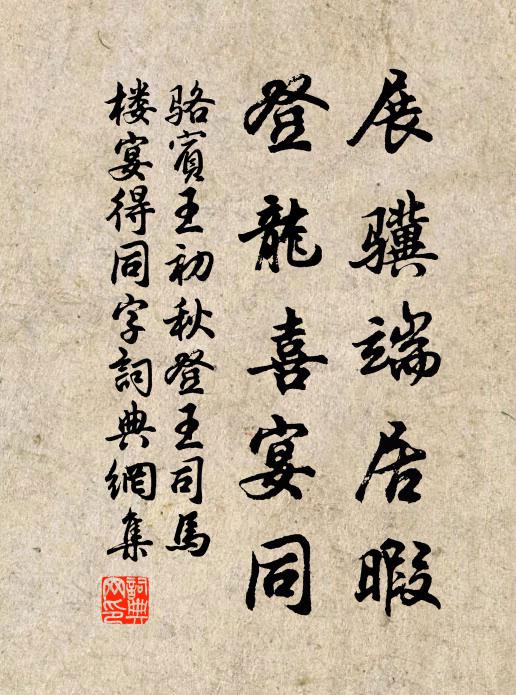 展骥端居暇
登龍喜宴同
骆賓王初秋登王司馬
楼宴得同字詞典網集
詞典